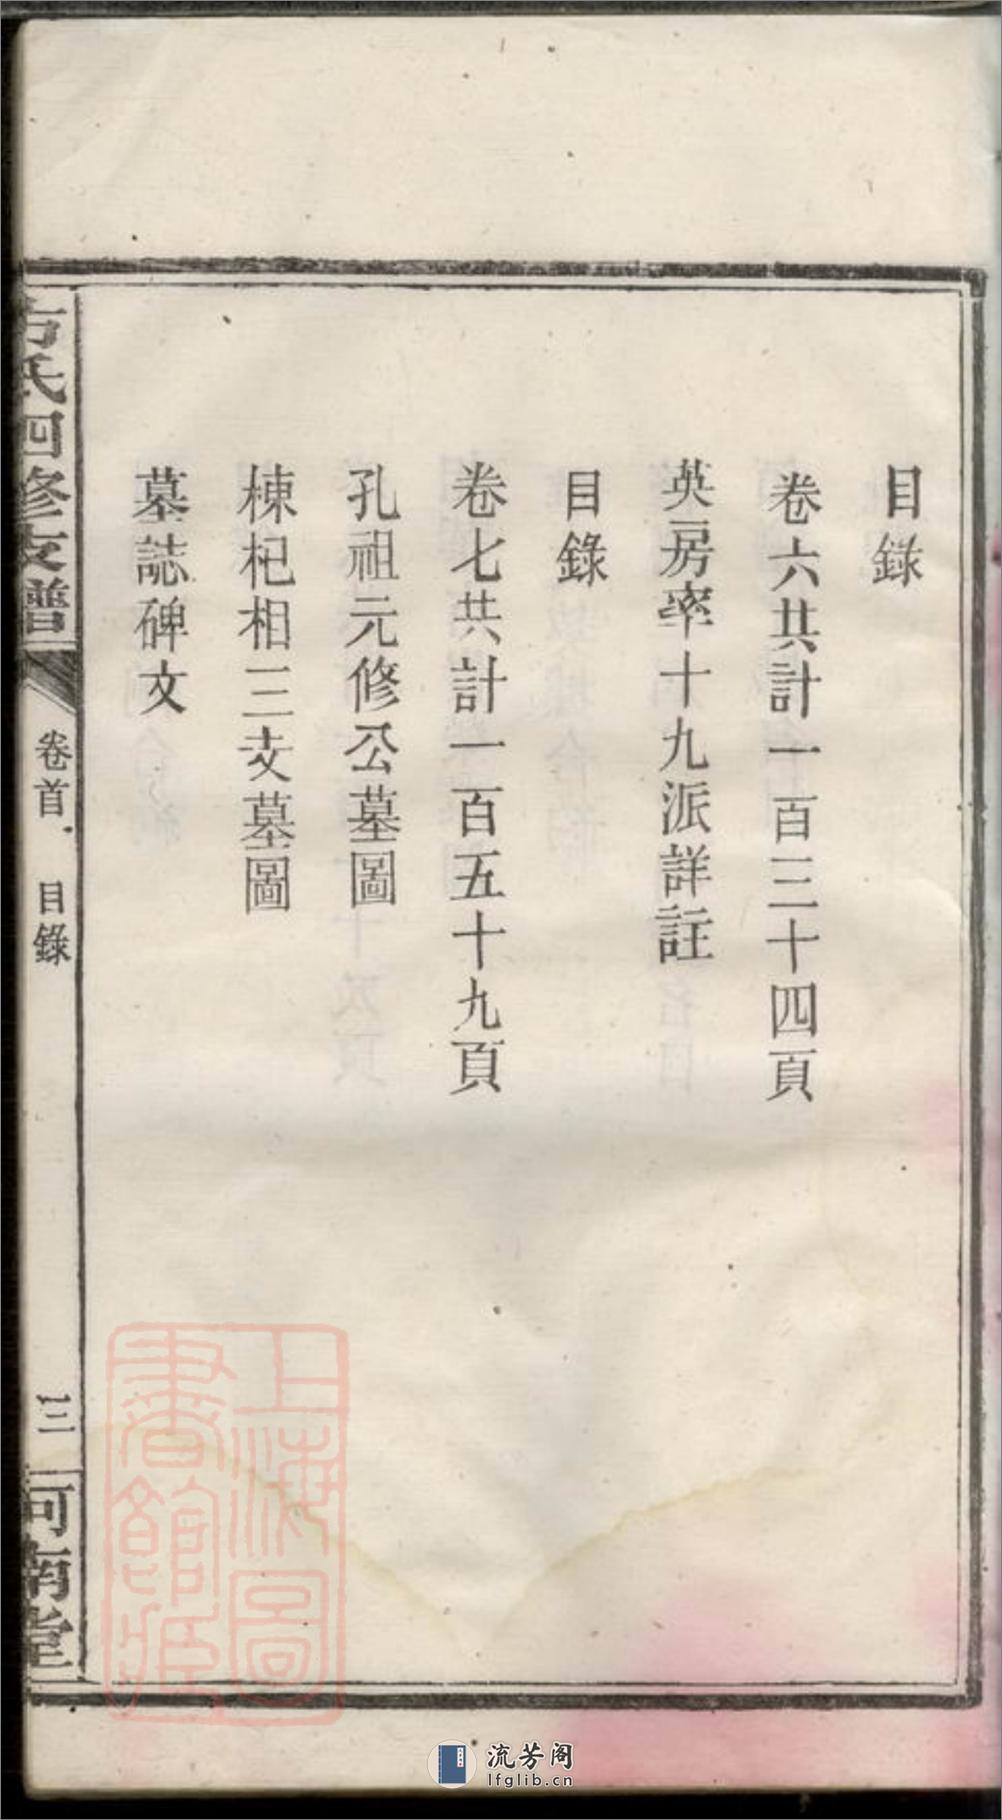 目錄
卷六共計一百三十四頁
英房率十九派詳註
目錄
卷七共計一百五十九頁
孔祖元修公墓圖
棟杞相三支墓圖
墓誌碑文
方氏四修支譜
卷首
目錄
三
河南堂
上海圖書館藏
流芳阁
lfglib.cn